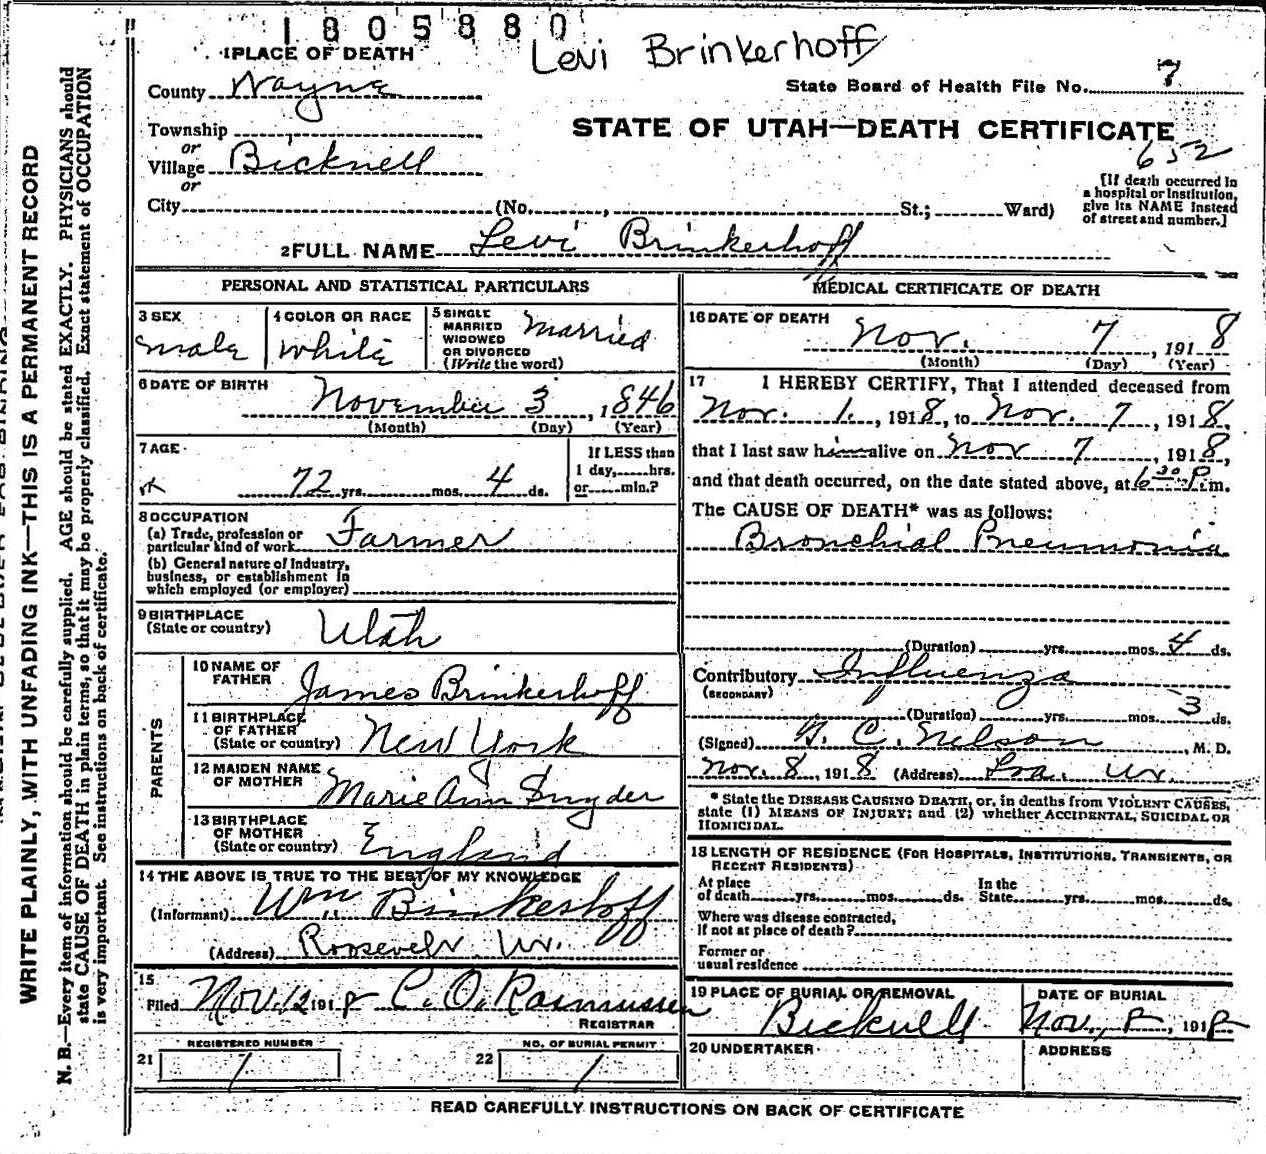 1805880
Levi Brinkerhoff
1 PLACE OF DEATH
County Wayne
State Board of Health File No. 7
Township
or
Village Bicknell
or
City (No. , St.; Ward)
STATE OF UTAH—DEATH CERTIFICATE
652
[If death occurred in
a hospital or institution,
give its NAME instead
of street and number.]
2 FULL NAME Levi Brinkerhoff
PERSONAL AND STATISTICAL PARTICULARS
3 SEX
male
4 COLOR OR RACE
White
5 SINGLE
MARRIED
WIDOWED
OR DIVORCED
(Write the word)
Married
6 DATE OF BIRTH
November 3, 1846
(Month) (Day) (Year)
7 AGE
72 yrs. mos. 4 ds.
If LESS than
1 day, hrs.
or min.?
8 OCCUPATION
(a) Trade, profession or
particular kind of work Farmer
(b) General nature of Industry,
business, or establishment in
which employed (or employer)
9 BIRTHPLACE
(State or country) Utah
PARENTS
10 NAME OF
FATHER James Brinkerhoff
11 BIRTHPLACE
OF FATHER
(State or country) New York
12 MAIDEN NAME
OF MOTHER Marie Ann Snyder
13 BIRTHPLACE
OF MOTHER
(State or country) England
14 THE ABOVE IS TRUE TO THE BEST OF MY KNOWLEDGE
(Informant) Wm. Brinkerhoff
(Address) Roosevelt Ut.
15
Filed Nov. 12 1918 C. O. Rasmussen
REGISTRAR
21 REGISTERED NUMBER
1
22 NO. OF BURIAL PERMIT
1
MEDICAL CERTIFICATE OF DEATH
16 DATE OF DEATH
Nov. 7, 1918
(Month) (Day) (Year)
17 I HEREBY CERTIFY, That I attended deceased from
Nov. 1., 1918, to Nov. 7, 1918,
that I last saw him alive on Nov 7, 1918,
and that death occurred, on the date stated above, at 6 30 P.m.
The CAUSE OF DEATH* was as follows:
Bronchial Pneumonia
(Duration) yrs. mos. 4 ds.
Contributory Influenza
(SECONDARY)
(Duration) yrs. mos. 3 ds.
(Signed) C. Nelson, M. D.
Nov. 8, 1918 (Address) Loa. Ut.
* State the DISEASE CAUSING DEATH, or, in deaths from VIOLENT CAUSES,
state (1) MEANS OF INJURY; and (2) whether ACCIDENTAL, SUICIDAL OR
HOMICIDAL.
18 LENGTH OF RESIDENCE (FOR HOSPITALS, INSTITUTIONS, TRANSIENTS, OR
RECENT RESIDENTS)
At place
of death yrs. mos. ds.
In the
State yrs. mos. ds.
Where was disease contracted,
if not at place of death?
Former or
usual residence
19 PLACE OF BURIAL OR REMOVAL
Bicknell
DATE OF BURIAL
Nov. 8, 1918
20 UNDERTAKER
ADDRESS
READ CAREFULLY INSTRUCTIONS ON BACK OF CERTIFICATE
WRITE PLAINLY, WITH UNFADING INK—THIS IS A PERMANENT RECORD
N. B.—Every item of information should be carefully supplied. AGE should be stated EXACTLY. PHYSICIANS should
state CAUSE OF DEATH in plain terms, so that it may be properly classified. Exact statement of OCCUPATION
is very important. See instructions on back of certificate.